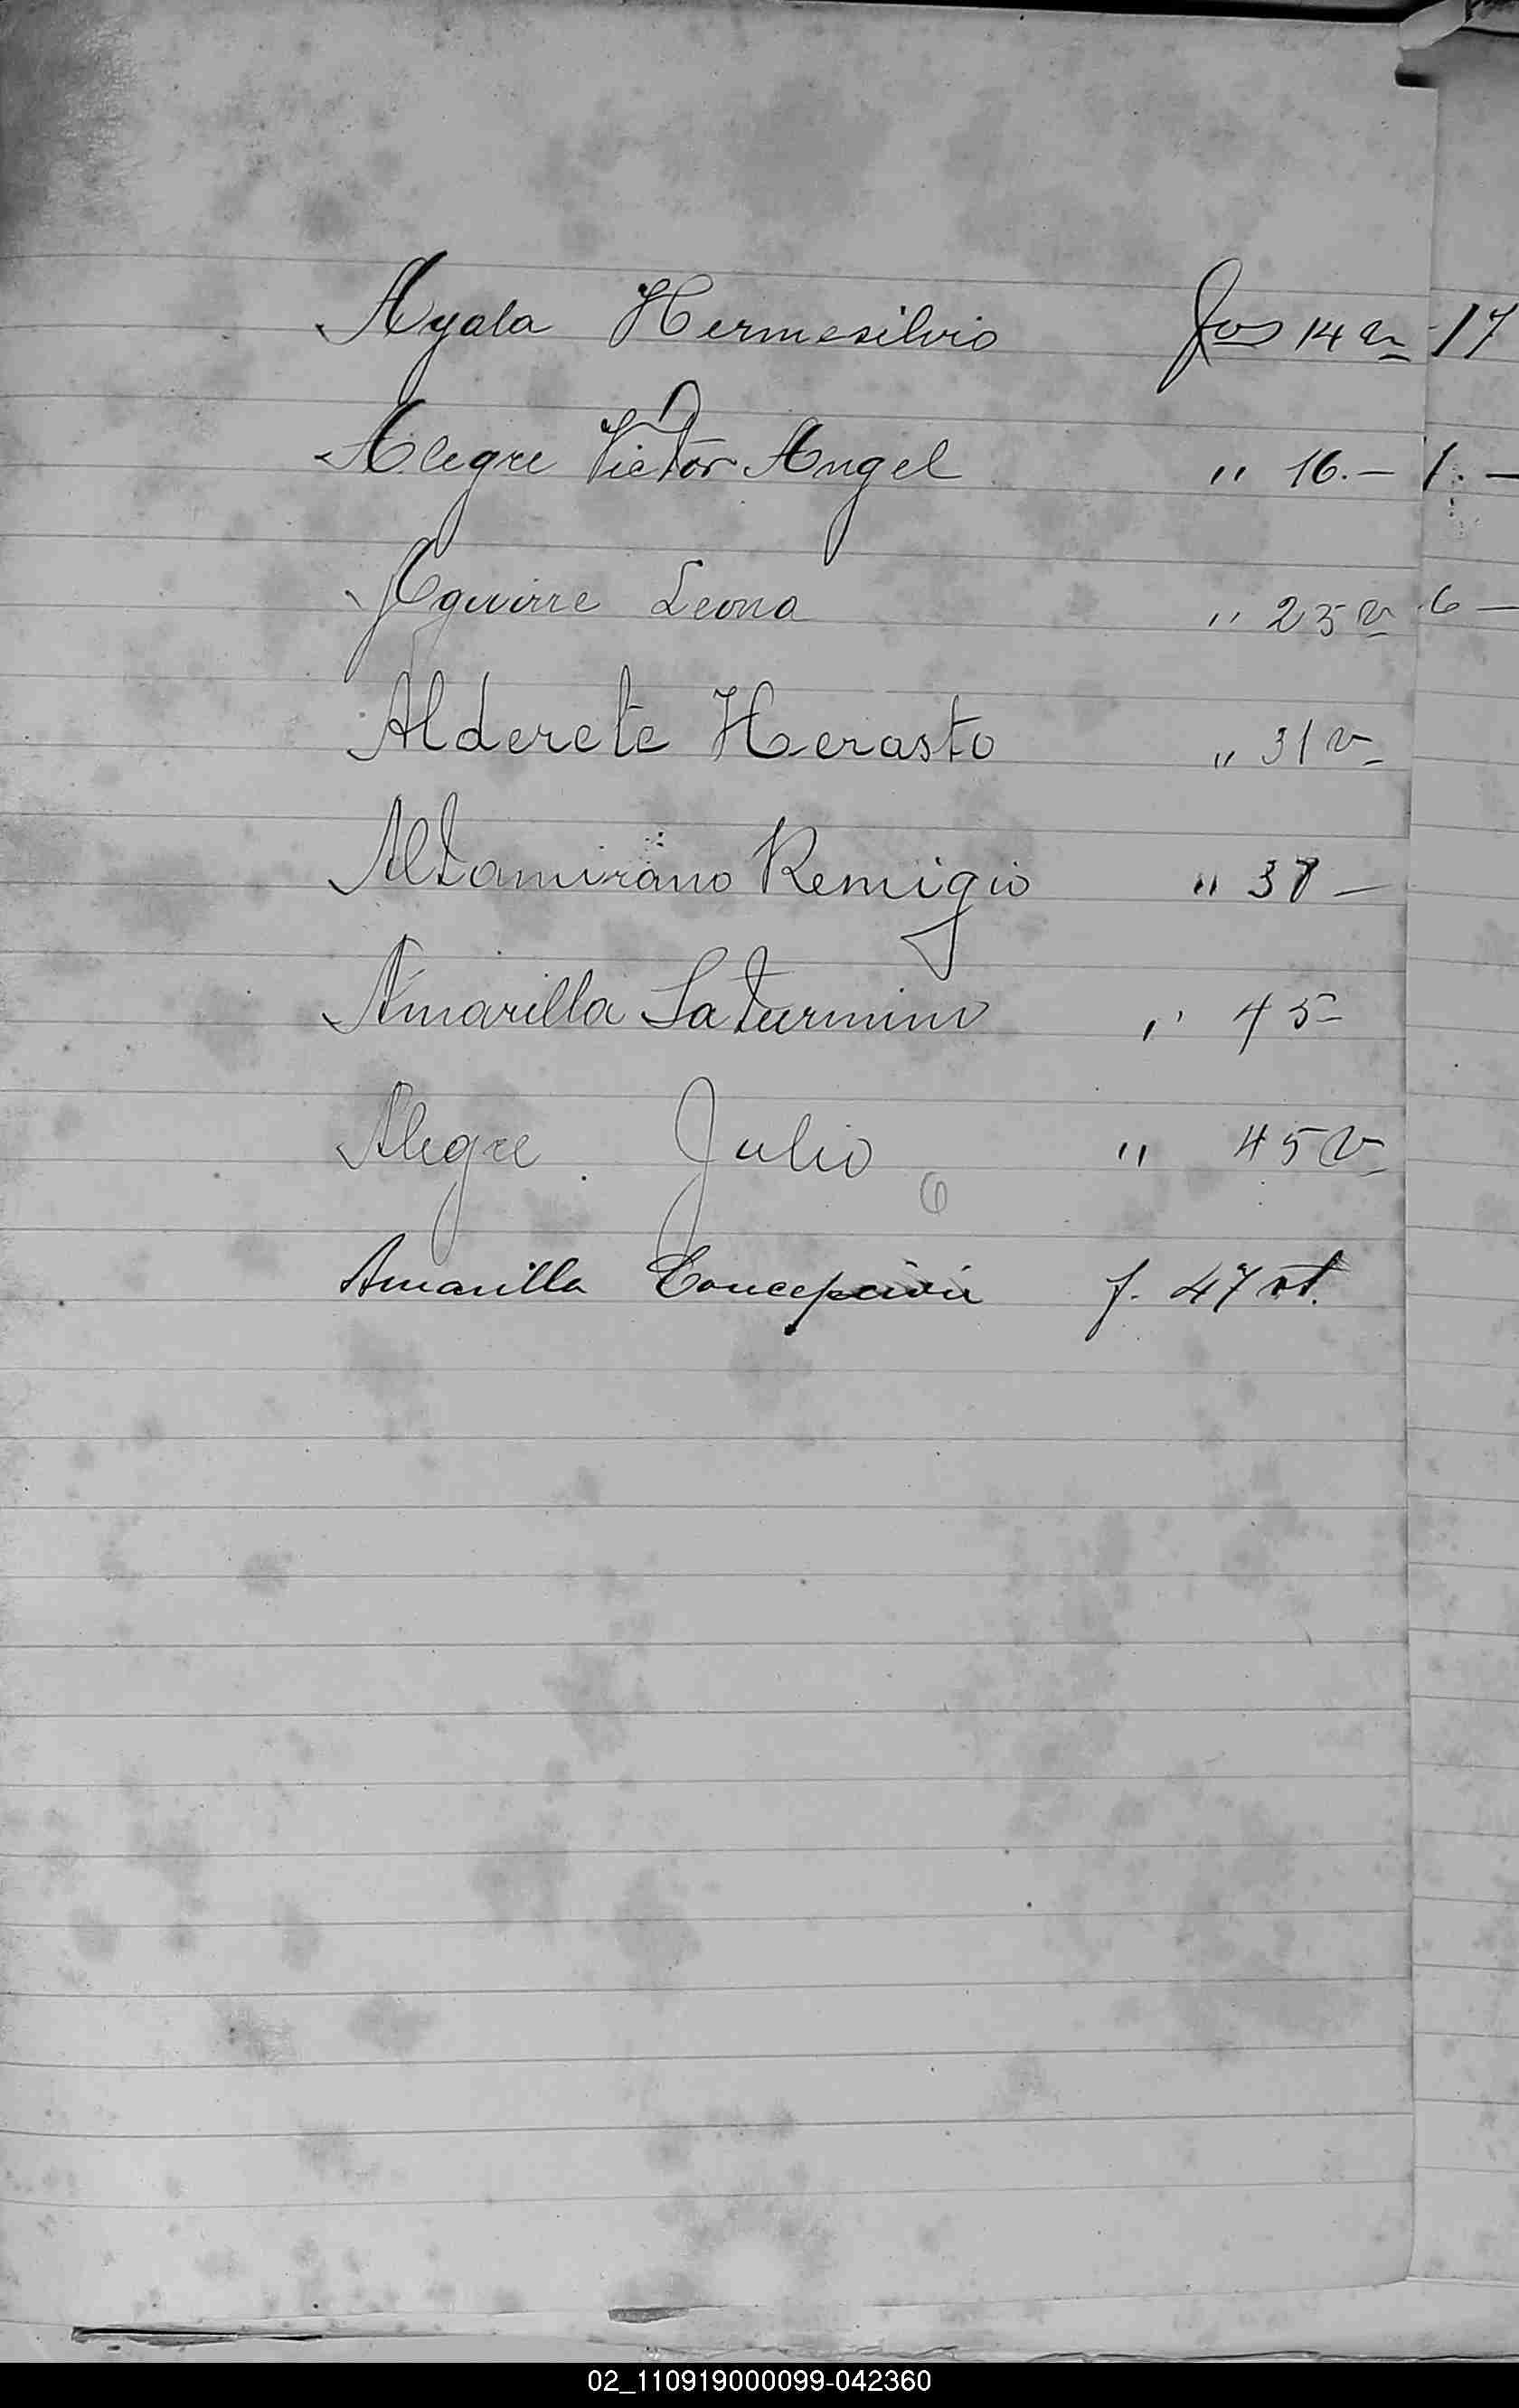 Ayala Hermesilvio Fos 14 v 17
Alegre Victor Angel " 16.- 1.-
Aguirre Leona " 25 v 6 -
Alderete Herasto " 31 v
Altamirano Remigio " 38 -
Amarilla Saturnino " 45-
Alegre Julio " 45 v
Amarilla Concepción f. 47 vt.
02_110919000099-042360